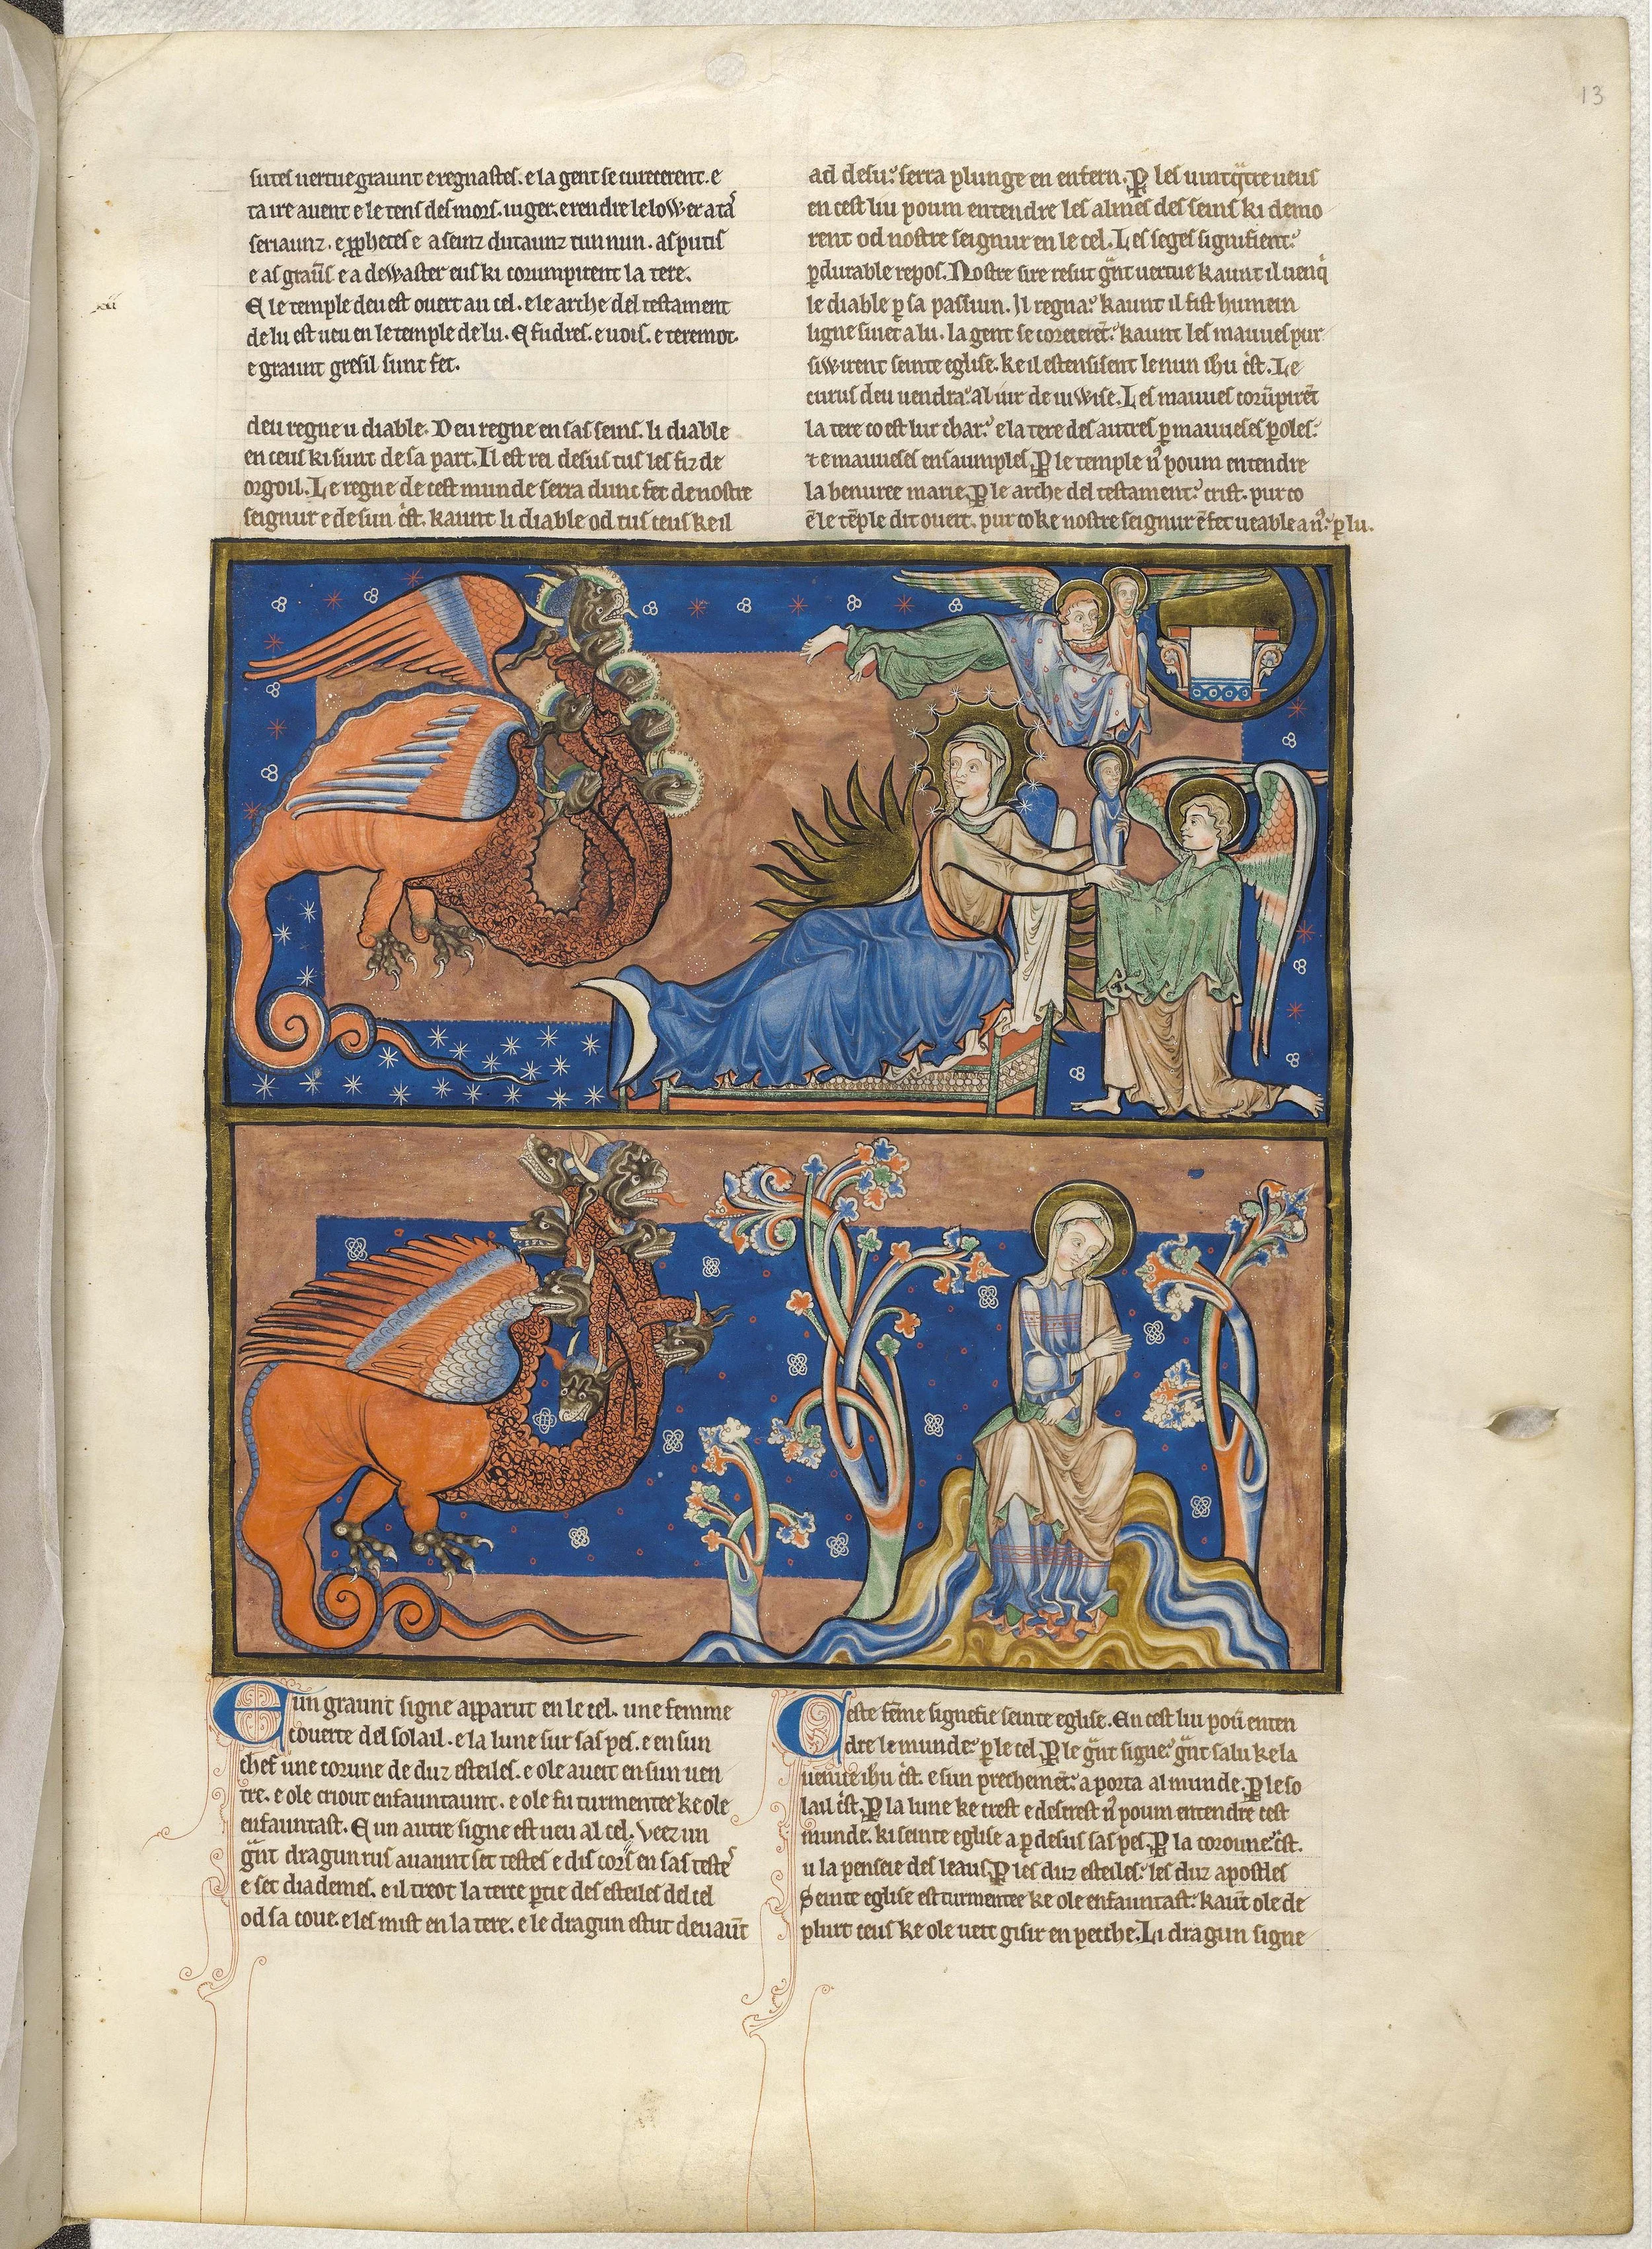 13
sutes uertue graunt e regnastes. e la gent se curecerent. e
ta ire auent e le tens des mors. iuger. e rendre le loWer a ta
seriaunz. e prophetes e a seinz dutaunz tun nun. as putis
e as graunz e a deWaster eus ki corumpirent la tere.
E le temple deu est ouert au cel. e le arche del testament
de lu est ueu en le temple de lu. E fudres. e uois. e teremot.
e graunt gresil sunt fet.
deu regne u diable. Deu regne en sas seins. li diable
en ceus ki sunt de sa part. Il est rei desus tus les fiz de
orgoil. Le regne de cest munde serra dunc fet de nostre
seignur e de sun c̄st. kaunt li diable od tus ceus ke il
ad desu: serra plunge en enfern. P les uintq̄tre ueus
en cest liu poum entendre les almes des seins ki demo
rent od nostre seignur en le cel. Les seges signifient:
p̱durable repos. Nostre sire resut g̃nt uertue kaunt il uenq̃
le diable p̱ sa passiun. Il regna: kaunt il fist humein
ligne suiet a lu. la gent se corecerēt: kaunt les mauues pur
siWirent seinte eglise. ke il estensisent le nun ihu c̄st. Le
curus deu uendra: al iur de iuWise. Les mauues corūpirēt
la tere co est lur char: e la tere des autres p̱ mauueses p̱oles:
⁊ e mauueses ensaumples. P le temple n' poum entendre
la benuree marie. P le arche del testament: crist. pur co
ē le tēple dit ouert. pur co ke nostre seignur ē fet ueable a n': p̱ lu.
E un graunt signe apparut en le cel. une femme
couerte del solail. e la lune sur sas pes. e en sun
chef une corune de duz esteiles. e ole aueit en sun uen
tre. e ole criout enfauntaunt. e ole fu turmentee ke ole
enfauntast. E un autre signe est ueu al cel. Veez un
g̃nt dragun rus auaunt set testes e dis corns en sas testes
e set diademes. e il treot la terce p̱tie des esteiles del cel
od sa coue. e les mist en la tere. e le dragun estut deuaūt
Ceste fēme signefie seinte eglise. En cest liu poū enten
dre le munde: p̱ le cel. P le g̃nt signe: g̃nt salu ke la
uenue ihu c̄st. e sun prechemēt: aporta al munde. P le so
lail c̄st. P la lune ke crest e descrest n' poum entendre cest
munde. ki seinte eglise a p̱ desus sas pes. P la coroune: c̄st.
u la penseie des leaus. P les duz esteiles: les duz apostles
Seinte eglise est turmentee ke ole enfauntast: kaūt ole de
plurt ceus ke ole ueit gisir en pecche. Li dragun signe